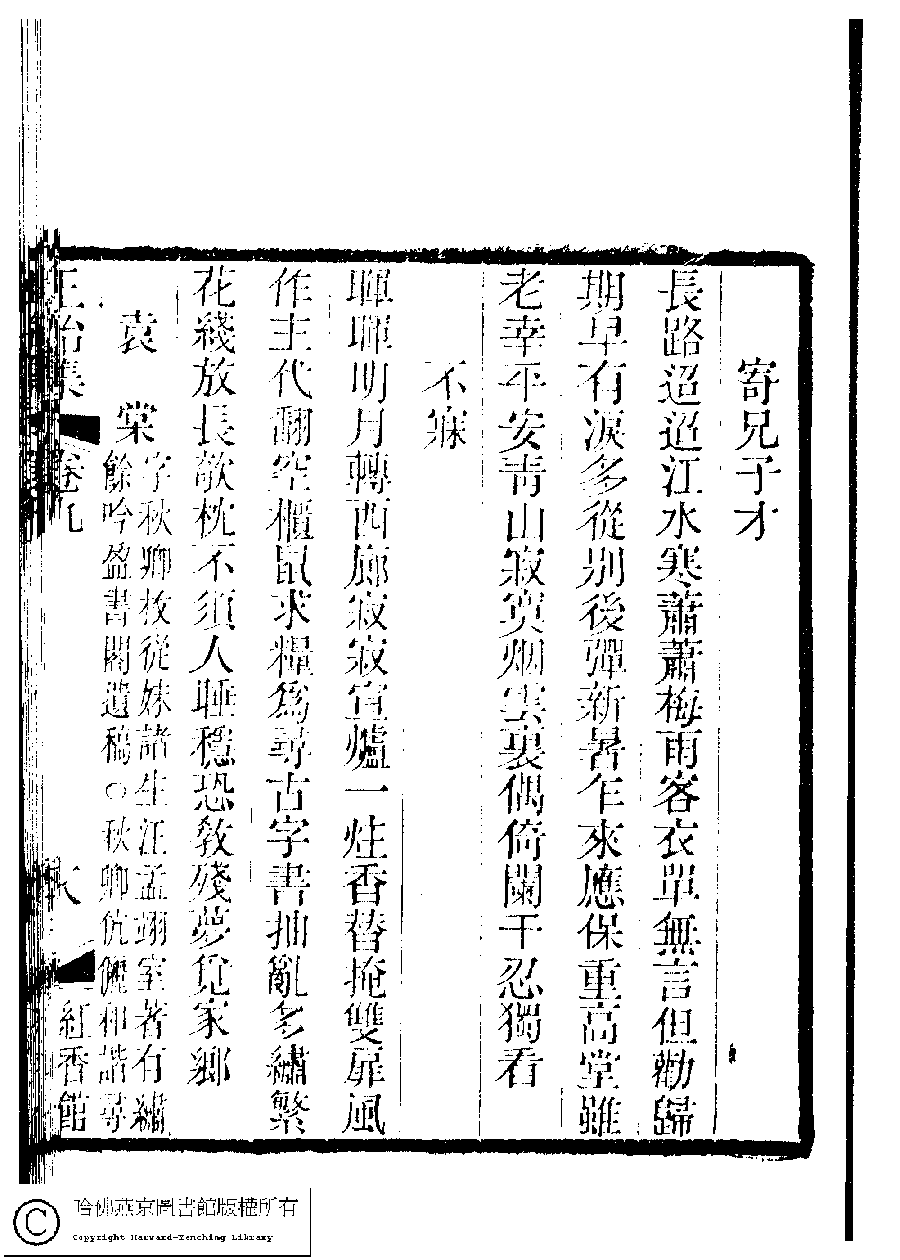 寄兄子才
長路迢迢江水寒蕭蕭梅雨客衣單無言但勸歸
期早有淚多從别後彈新暑乍來應保重高堂雖
老幸平安靑山寂寞烟雲裏偶倚闌干忍獨看
不寐
暉暉明月轉西廊寂寂宣爐一炷香替掩雙扉風
作主代翻空櫃鼠求糧爲尋古字書抽亂多繡繁
花綫放長欹枕不須人睡穩恐敎殘夢覓家鄉
袁棠
字秋卿枚從妹諸生汪孟翊室著有繡
餘吟盈書閣遺稿○秋卿伉儷和諧尋
卷九
紅香館
哈佛燕京圖書館版權所有
Copyright Harvard-Yenching Library